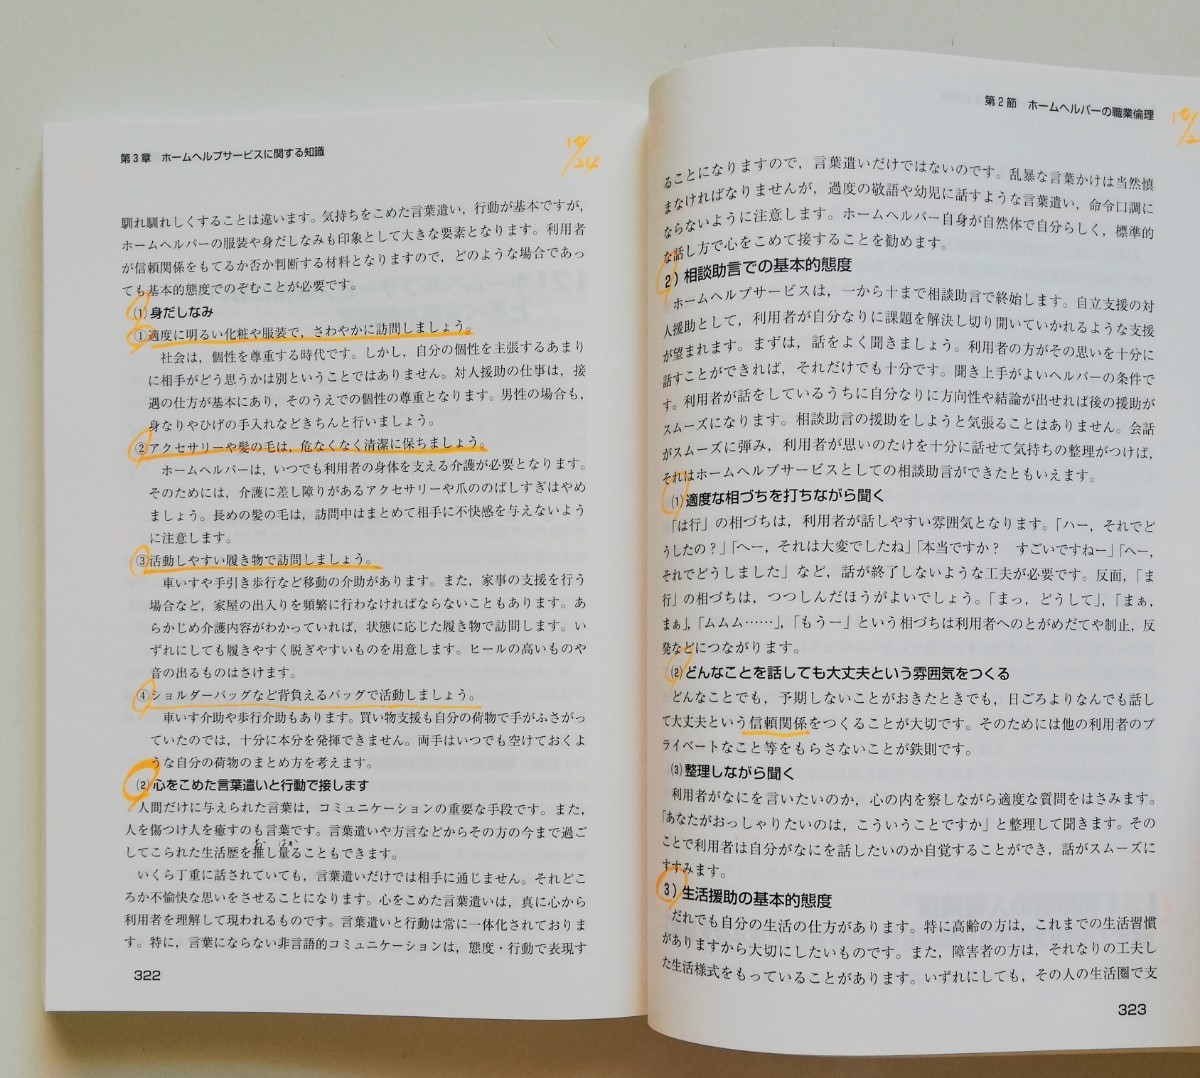 第3章 ホームヘルプサービスに関する知識
10/24
馴れ馴れしくすることは違います。気持ちをこめた言葉遣い，行動が基本ですが，
ホームヘルパーの服装や身だしなみも印象として大きな要素となります。利用者
が信頼関係をもてるか否か判断する材料となりますので，どのような場合であっ
ても基本的態度でのぞむことが必要です。
(1)身だしなみ
①適度に明るい化粧や服装で，さわやかに訪問しましょう。
社会は，個性を尊重する時代です。しかし，自分の個性を主張するあまり
に相手がどう思うかは別ということではありません。対人援助の仕事は，接
遇の仕方が基本にあり，そのうえでの個性の尊重となります。男性の場合も，
身なりやひげの手入れなどきちんと行いましょう。
②アクセサリーや髪の毛は，危なくなく清潔に保ちましょう。
ホームヘルパーは，いつでも利用者の身体を支える介護が必要となります。
そのためには，介護に差し障りがあるアクセサリーや爪ののばしすぎはやめ
ましょう。長めの髪の毛は，訪問中はまとめて相手に不快感を与えないよう
に注意します。
③活動しやすい履き物で訪問しましょう。
車いすや手引き歩行など移動の介助があります。また，家事の支援を行う
場合など，家屋の出入りを頻繁に行わなければならないこともあります。あ
らかじめ介護内容がわかっていれば，状態に応じた履き物で訪問します。い
ずれにしても履きやすく脱ぎやすいものを用意します。ヒールの高いものや
音の出るものはさけます。
④ショルダーバッグなど背負えるバッグで活動しましょう。
車いす介助や歩行介助もあります。買い物支援も自分の荷物で手がふさがっ
ていたのでは，十分に本分を発揮できません。両手はいつでも空けておくよ
うな自分の荷物のまとめ方を考えます。
(2)心をこめた言葉遣いと行動で接します
人間だけに与えられた言葉は，コミュニケーションの重要な手段です。また，
人を傷つけ人を癒すのも言葉です。言葉遣いや方言などからその方の今まで過ご
お はか
してこられた生活歴を推し量ることもできます。
いくら丁重に話されていても，言葉遣いだけでは相手に通じません。それどこ
ろか不愉快な思いをさせることになります。心をこめた言葉遣いは，真に心から
利用者を理解して現われるものです。言葉遣いと行動は常に一体化されておりま
す。特に，言葉にならない非言語的コミュニケーションは，態度・行動で表現す
322
第2節 ホームヘルパーの職業倫理
ることになりますので，言葉遣いだけではないのです。乱暴な言葉かけは当然慎
まなければなりませんが，過度の敬語や幼児に話すような言葉遣い，命令口調に
ならないように注意します。ホームヘルパー自身が自然体で自分らしく，標準的
な話し方で心をこめて接することを勧めます。
2）相談助言での基本的態度
ホームヘルプサービスは，一から十まで相談助言で終始します。自立支援の対
人援助として，利用者が自分なりに課題を解決し切り開いていかれるような支援
が望まれます。まずは，話をよく聞きましょう。利用者の方がその思いを十分に
話すことができれば，それだけでも十分です。聞き上手がよいヘルパーの条件で
す。利用者が話をしているうちに自分なりに方向性や結論が出せれば後の援助が
スムーズになります。相談助言の援助をしようと気張ることはありません。会話
がスムーズに弾み，利用者が思いのたけを十分に話せて気持ちの整理がつけば，
それはホームヘルプサービスとしての相談助言ができたともいえます。
(1)適度な相づちを打ちながら聞く
「は行」の相づちは，利用者が話しやすい雰囲気となります。「ハー，それでど
うしたの？」「へー，それは大変でしたね」「本当ですか？ すごいですねー」「へー，
それでどうしました」など，話が終了しないような工夫が必要です。反面，「ま
行」の相づちは，つつしんだほうがよいでしょう。「まっ，どうして」，「まぁ，
まぁ」，「ムムム……」，「もうー」という相づちは利用者へのとがめだてや制止，反
発などにつながります。
(2)どんなことを話しても大丈夫という雰囲気をつくる
どんなことでも，予期しないことがおきたときでも，日ごろよりなんでも話し
て大丈夫という信頼関係をつくることが大切です。そのためには他の利用者のプ
ライベートなこと等をもらさないことが鉄則です。
(3)整理しながら聞く
利用者がなにを言いたいのか，心の内を察しながら適度な質問をはさみます。
「あなたがおっしゃりたいのは，こういうことですか」と整理して聞きます。その
ことで利用者は自分がなにを話したいのか自覚することができ，話がスムーズに
すすみます。
3）生活援助の基本的態度
だれでも自分の生活の仕方があります。特に高齢の方は，これまでの生活習慣
がありますから大切にしたいものです。また，障害者の方は，それなりの工夫し
た生活様式をもっていることがあります。いずれにしても，その人の生活圏で支
323